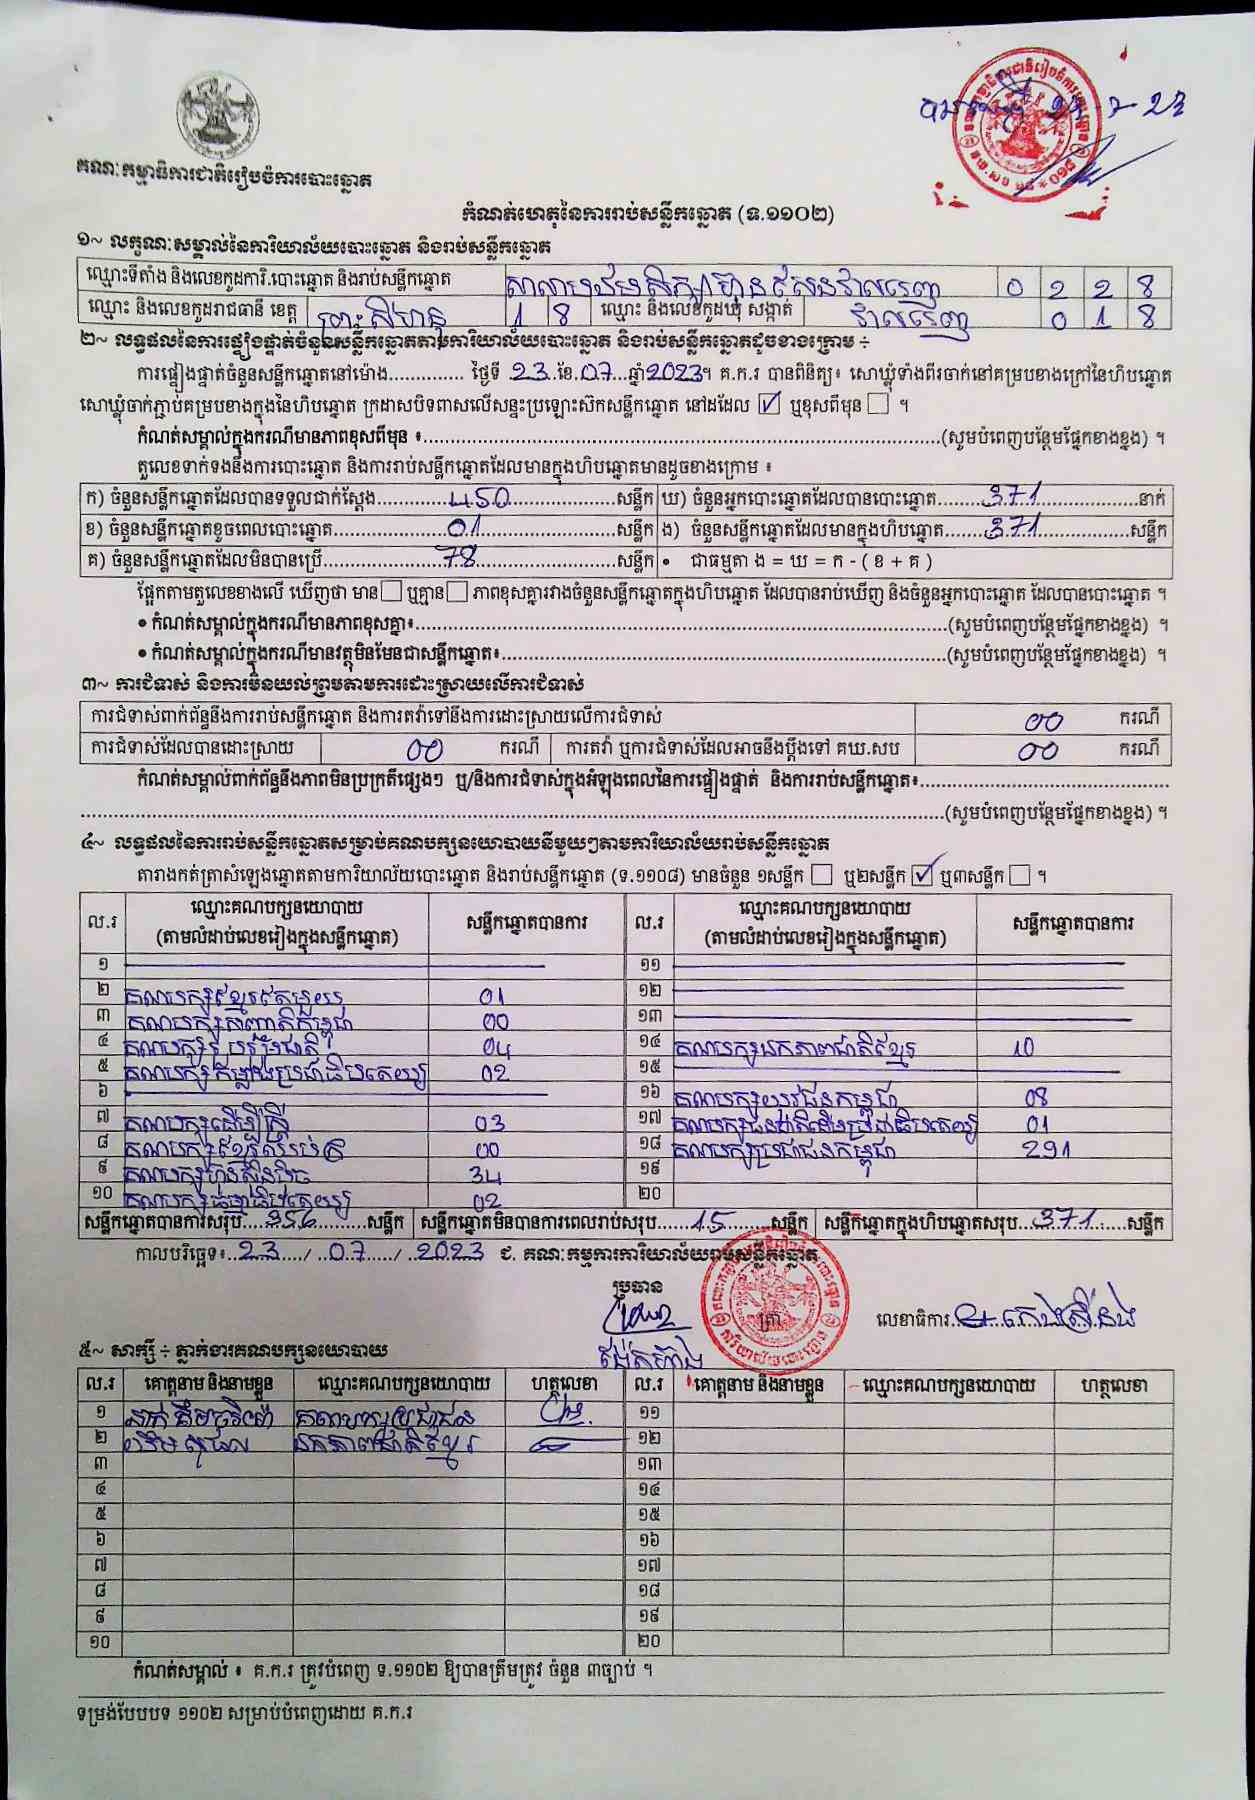 គណៈកម្មាធិការជាតិរៀបចំការបោះឆ្នោត
កំណត់ហេតុនៃការរាប់សន្លឹកឆ្នោត (ទ.១១០២)
១~ លក្ខណៈសម្គាល់នៃការិយាល័យបោះឆ្នោត និងរាប់សន្លឹកឆ្នោត
ឈ្មោះទីតាំង និងលេខកូដការិ.បោះឆ្នោត និងរាប់សន្លឹកឆ្នោត 0 2 2 8
ឈ្មោះ និងលេខកូដរាជធានី ខេត្ត ព្រះសីហនុ 1 8 ឈ្មោះ និងលេខកូដឃុំ សង្កាត់ វាលរេញ 0 1 8
២~ លទ្ធផលនៃការផ្ទៀងផ្ទាត់ចំនួនសន្លឹកឆ្នោតតាមការិយាល័យបោះឆ្នោត និងរាប់សន្លឹកឆ្នោតដូចខាងក្រោម ÷
ការផ្ទៀងផ្ទាត់ចំនួនសន្លឹកឆ្នោតនៅម៉ោង.............. ថ្ងៃទី 23 ខែ 07 ឆ្នាំ 2023។ គ.ក.រ បានពិនិត្យ៖ សោឃ្លុំទាំងពីរចាក់នៅគម្របខាងក្រៅនៃហិបឆ្នោត
សោឃ្លុំចាក់ភ្ជាប់គម្របខាងក្នុងនៃហិបឆ្នោត ក្រដាសបិទពាសលើសន្ទះប្រឡោះស៊កសន្លឹកឆ្នោត នៅដដែល ☑ ឬខុសពីមុន ☐ ។
កំណត់សម្គាល់ក្នុងករណីមានភាពខុសពីមុន ៖..........(សូមបំពេញបន្ថែមផ្នែកខាងខ្នង) ។
តួលេខទាក់ទងនឹងការបោះឆ្នោត និងការរាប់សន្លឹកឆ្នោតដែលមានក្នុងហិបឆ្នោតមានដូចខាងក្រោម ៖
ក) ចំនួនសន្លឹកឆ្នោតដែលបានទទួលជាក់ស្តែង.....450.....សន្លឹក ឃ) ចំនួនអ្នកបោះឆ្នោតដែលបានបោះឆ្នោត.....371.....នាក់
ខ) ចំនួនសន្លឹកឆ្នោតខូចពេលបោះឆ្នោត.....01.....សន្លឹក ង) ចំនួនសន្លឹកឆ្នោតដែលមានក្នុងហិបឆ្នោត.....371.....សន្លឹក
គ) ចំនួនសន្លឹកឆ្នោតដែលមិនបានប្រើ.....78.....សន្លឹក • ជាធម្មតា ង = ឃ = ក - ( ខ + គ )
ផ្អែកតាមតួលេខខាងលើ ឃើញថា មាន ☐ ឬគ្មាន ☐ ភាពខុសគ្នារវាងចំនួនសន្លឹកឆ្នោតក្នុងហិបឆ្នោត ដែលបានរាប់ឃើញ និងចំនួនអ្នកបោះឆ្នោត ដែលបានបោះឆ្នោត ។
• កំណត់សម្គាល់ក្នុងករណីមានភាពខុសគ្នា៖..........(សូមបំពេញបន្ថែមផ្នែកខាងខ្នង) ។
• កំណត់សម្គាល់ក្នុងករណីមានវត្ថុមិនមែនជាសន្លឹកឆ្នោត៖..........(សូមបំពេញបន្ថែមផ្នែកខាងខ្នង) ។
៣~ ការជំទាស់ និងការមិនយល់ព្រមតាមការដោះស្រាយលើការជំទាស់
ការជំទាស់ពាក់ព័ន្ធនឹងការរាប់សន្លឹកឆ្នោត និងការតវ៉ាទៅនឹងការដោះស្រាយលើការជំទាស់ 00 ករណី
ការជំទាស់ដែលបានដោះស្រាយ 00 ករណី ការតវ៉ា ឬការជំទាស់ដែលអាចនឹងប្តឹងទៅ គឃ.សប 00 ករណី
កំណត់សម្គាល់ពាក់ព័ន្ធនឹងភាពមិនប្រក្រតីផ្សេងៗ ឬ/និងការជំទាស់ក្នុងអំឡុងពេលនៃការផ្ទៀងផ្ទាត់ និងការរាប់សន្លឹកឆ្នោត៖..........
..........(សូមបំពេញបន្ថែមផ្នែកខាងខ្នង) ។
៤~ លទ្ធផលនៃការរាប់សន្លឹកឆ្នោតសម្រាប់គណបក្សនយោបាយនីមួយៗតាមការិយាល័យរាប់សន្លឹកឆ្នោត
តារាងកត់ត្រាសំឡេងឆ្នោតតាមការិយាល័យបោះឆ្នោត និងរាប់សន្លឹកឆ្នោត (ទ.១១០៨) មានចំនួន ១សន្លឹក ☐ ឬ២សន្លឹក ☑ ឬ៣សន្លឹក ☐ ។
ល.រ ឈ្មោះគណបក្សនយោបាយ (តាមលំដាប់លេខរៀងក្នុងសន្លឹកឆ្នោត) សន្លឹកឆ្នោតបានការ ល.រ ឈ្មោះគណបក្សនយោបាយ (តាមលំដាប់លេខរៀងក្នុងសន្លឹកឆ្នោត) សន្លឹកឆ្នោតបានការ
១ ១១
២ គណបក្សខ្មែរតែមួយ 01 ១២
៣ គណបក្សកញ្ញាតិកម្ពុជា 00 ១៣
៤ គណបក្ស 04 ១៤ គណបក្សឯកភាពជាតិខ្មែរ 10
៥ គណបក្សកម្លាំងប្រជាធិបតេយ្យ 02 ១៥
៦ ១៦ គណបក្សយុវជនកម្ពុជា 08
៧ គណបក្សដើម្បីស្ត្រី 03 ១៧ គណបក្សជនជាតិដើមប្រជាធិបតេយ្យ 01
៨ គណបក្ស 00 ១៨ គណបក្សប្រជាជនកម្ពុជា 291
៩ គណបក្សហ៊្វុនស៊ិនប៉ិច 34 ១៩
១០ គណបក្សធម្មាធិបតេយ្យ 02 ២០
សន្លឹកឆ្នោតបានការសរុប....356....សន្លឹក សន្លឹកឆ្នោតមិនបានការពេលរាប់សរុប....15....សន្លឹក សន្លឹកឆ្នោតក្នុងហិបឆ្នោតសរុប..371....សន្លឹក
កាលបរិច្ឆេទ៖..23..../..07..../..2023 ជ. គណៈកម្មការការិយាល័យរាប់សន្លឹកឆ្នោត
ប្រធាន
ត្រា
លេខាធិការ
៥~ សាក្សី ÷ ភ្នាក់ងារគណបក្សនយោបាយ
ល.រ គោត្តនាម និងនាមខ្លួន ឈ្មោះគណបក្សនយោបាយ ហត្ថលេខា ល.រ គោត្តនាម និងនាមខ្លួន ឈ្មោះគណបក្សនយោបាយ ហត្ថលេខា
១ គណបក្សប្រជាជន ១១
២ ឯកភាពជាតិខ្មែរ ១២
៣ ១៣
៤ ១៤
៥ ១៥
៦ ១៦
៧ ១៧
៨ ១៨
៩ ១៩
១០ ២០
កំណត់សម្គាល់ ៖ គ.ក.រ ត្រូវបំពេញ ទ.១១០២ ឱ្យបានត្រឹមត្រូវ ចំនួន ៣ច្បាប់ ។
ទម្រង់បែបបទ ១១០២ សម្រាប់បំពេញដោយ គ.ក.រ